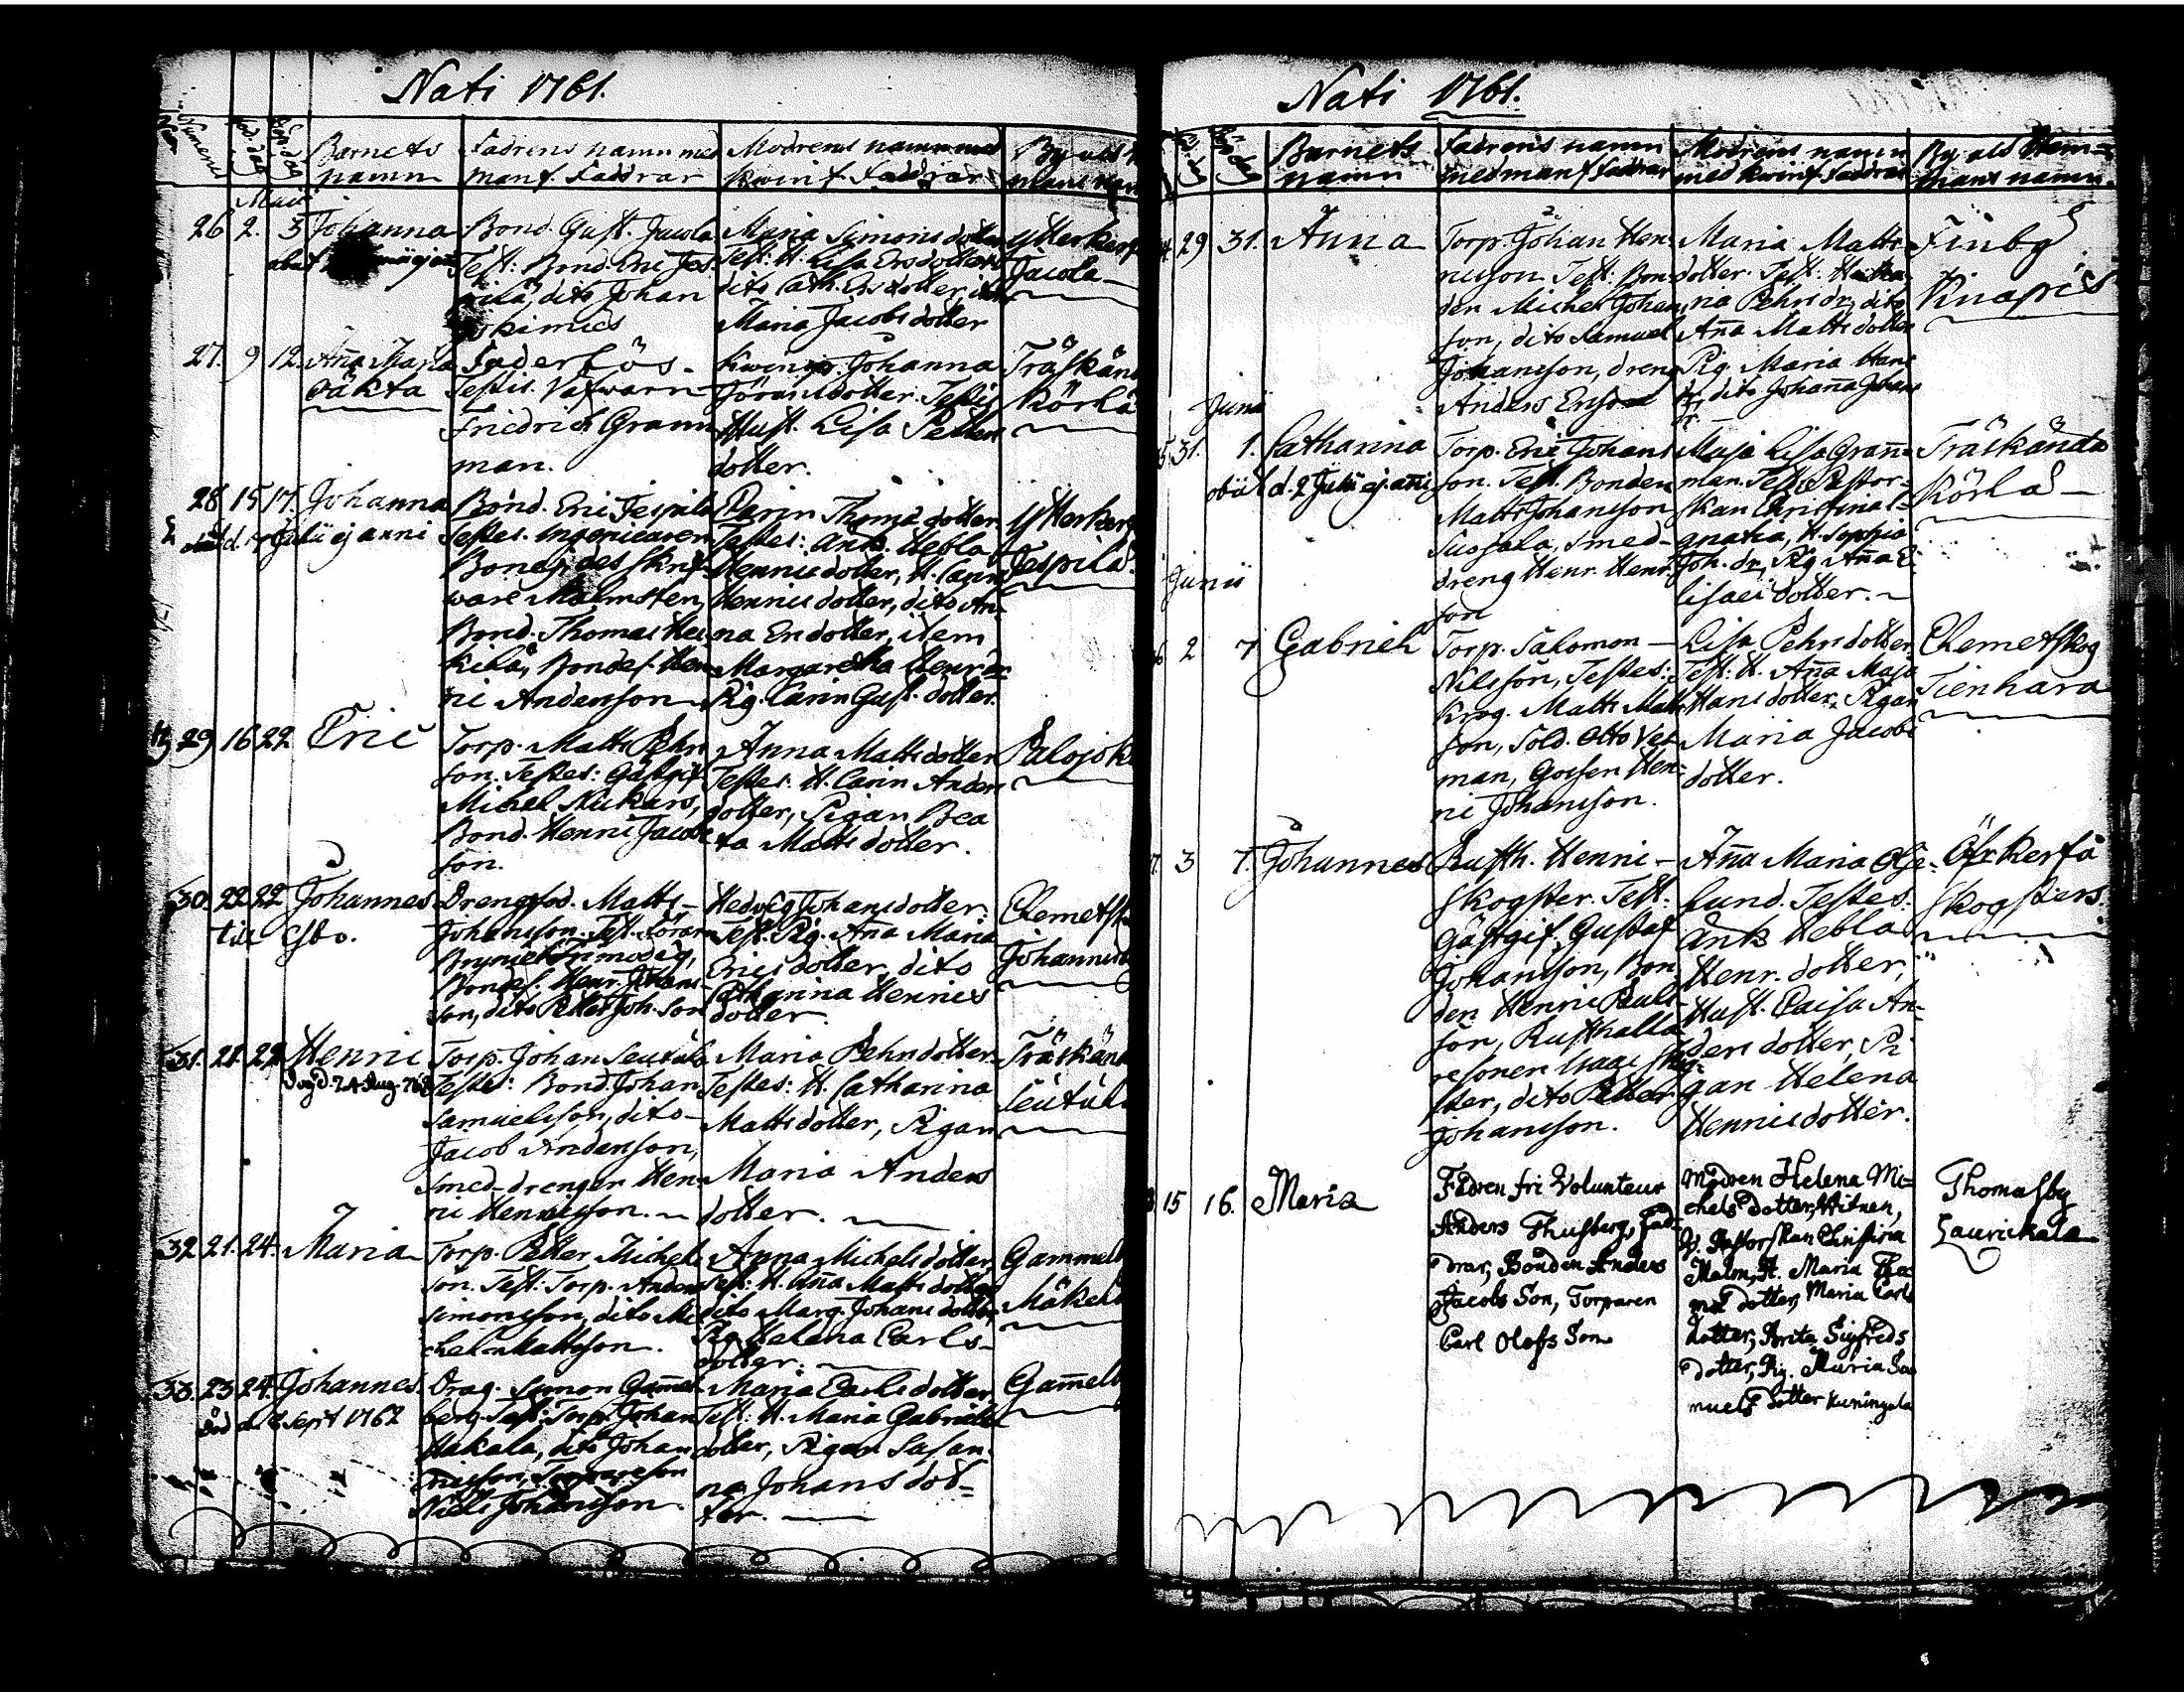 Nati 1761.
Numerus
Barnets namn
Fadrens namn med manf. Faddrar
Modrens namn med kwinf. Faddrar
By
Maii
26 2. 3 Johanna
Bond. Gust. Jacola
Test: Bond. Eric Jes-
pilä, dito Johan
Maria Simons dotter
Test: H. Lisa Ersdotter
dito Cath. Ersdotter,
Maria Jacobs dotter
Jacola
27. 9 12. Aña Maja
oäkta
Faderlös.
Testis.
Friedrich Gran
man.
Johanna
Jöransdotter. Testis
Hust. Lisa Petters
dotter.
Träskän
Körla
28. 15 17. Johanna
Julii ej anni
Bond. Eric Jespilä
Testes. Ingenieuren
Malmsten,
Bond. Thomas Hei
kilä, Bondes. Hen
ric Andersson
Carin Thomæ dotter.
Testes: Enk. Hebla
Henricsdotter, H. Carin
Henrics dotter, dito An-
na Ersdotter, item
Margaretha Henr. dr
Pig. Carin Gust. dotter.
Jespilä.
29 16 22 Eric
Torp. Matts Pehr
son. Testes: Gästgif.
Michel Nickars,
Bond. Henric Jacobs
son.
Anna Matts dotter
Testes. H. Carin Anders
dotter, Pigan Bea
ta Matts dotter.
Palojok
30. 22 22 Johannes
till Esbo.
Matts
Johansson. Test.
Bondes. Henr. Johans-
son, dito Petter Joh. son
Hedvig Johansdotter.
Test. Pig. Aña Maria
Erics dotter, dito
Catharina Henrics
dotter.
Clemetsk
31. 21. 22 Henric
Torp. Johan Seutula
Testes: Bond. Johan
Samuelsson, dito
Jacob Andersson,
Smed-drengen Hen
ric Henricsson.
Maria Pehrsdotter
Testes: H. Catharina
Mattsdotter, Pigan
Maria Anders
dotter.
Träskän
Seutula
32 21. 24. Maria
Torp. Petter Michels
son. Test: Torp. Anders
Simonsson, dito Mi
chel Mattsson.
Anna Michels dotter
Test: H. Aña Matts dotter
dito Marg. Johans dotter,
Pig. Helena Carls-
dotter.
Gammelb
Mäkelä
33. 23 24. Johannes.
död d. 8 Sept 1762
Drag. Simon Gamel
berg. Test: Torp. Johan
Hakala, dito Johan
Ericsson, Torpareson
Niels Johansson.
Maria Carls dotter
Test: H. Maria Gabriels
dotter, Pigan Susan
na Johans dot=
ter.
Gam̄elb
Nati 1761.
Barnets namn
Fadrens namn med manf. Faddrar
Modrens namn med kwinf. Faddrar
By als Hem=
mans namn.
29 31. Anna
Torp. Johan Hen-
ricsson. Test: Bon
den Michel Johans
son, dito Samuel
Johansson, dreng
Anders Ersson
Maria Matts
dotter. Test:
Pehrs dr, dito
Aña Matts dotter
Pig. Maria Hans
dr, dito Johanna Johans
dr.
Finby
Knapis
Junii
31. 1. Catharina
obiit d. 2 Julii ej. añi
Torp. Eric Johans
son. Test. Bonden
Matts Johansson
Suosala, Smed-
dreng Henr. Henr.
son
Maja Lisa Grañ-
man. Test. Pastor-
skan Christina
H. Sophia
Joh. dr, Pig Aña E
lisæi dotter.
Träskända
Körla
Junii
2 7 Gabriel
Torp. Salomon
Nilsson, Testes:
Krog. Matts Matts
son, Sold. Otto Ves
man, Gossen Hen-
ric Johansson.
Lisa Pehrs dotter,
Test: H. Aña Maja
Hans dotter, Pigan
Maria Jacobs
dotter.
Clemetskog
Tienhara
3 7. Johannes
Rusth. Henric
Skogster. Test:
Gästgif. Gustaf
Johansson, Bon
den Henric Pauls
son, Rusthålla
resonen Isaac Skog-
ster, dito Petter
Johansson.
Aña Maria Olje-
lund. Testes:
Enk Hebla
Henr. dotter,
Hust. Caisa An-
ders dotter, Pi
gan Helena
Henrics dotter.
Öfverkerfä
Skogsters.
15 16. Maria
Fadren fri Volunteur
Anders Thusberg, Fad-
drar, Bonden Anders
Jacobs Son, Torparen
Carl Olofs Son
Modren Helena Mi=
chels Dotter, Witnen,
V. Pastorskan Christina
Malm, H. Maria Tho
mæ dotter, Maria Carls
dotter, Brita Sigfreds
dotter, Pig. Maria Sa
muels Dotter Kuningala
Thomasby
Laurickala